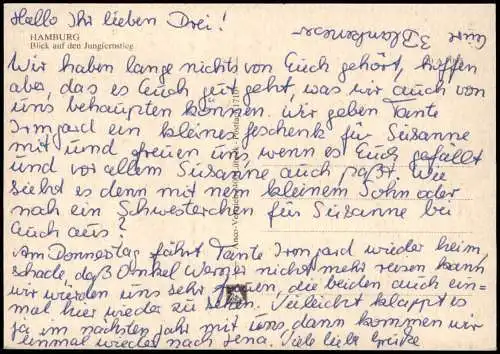 Hallo Ihr lieben Drei!
HAMBURG
Blick auf den Jungfernstieg
Wir haben lange nichts von Euch gehört, hoffen
aber, das es Euch gut geht, was wir auch von
uns behaupten können. Wir geben Tante
Irmgard ein kleines Geschenk für Susanne
mit und freuen uns, wenn es Euch gefällt
und vor allem Susanne auch paßt. Wie
sieht es denn mit nem kleinem Sohn oder
noch ein Schwesterchen für Susanne bei
Euch aus?
Am Donnerstag fährt Tante Irmgard wieder heim,
schade, daß Onkel Werner nicht mehr reisen kann
wir würden uns sehr freuen, die beiden auch ein-
mal hier wieder zu sehen. Vielleicht klappt es
ja im nächsten Jahr mit uns, dann kommen wir
einmal wieder nach Jena. Viele liebe Grüße
Eure 3 Blankeneser